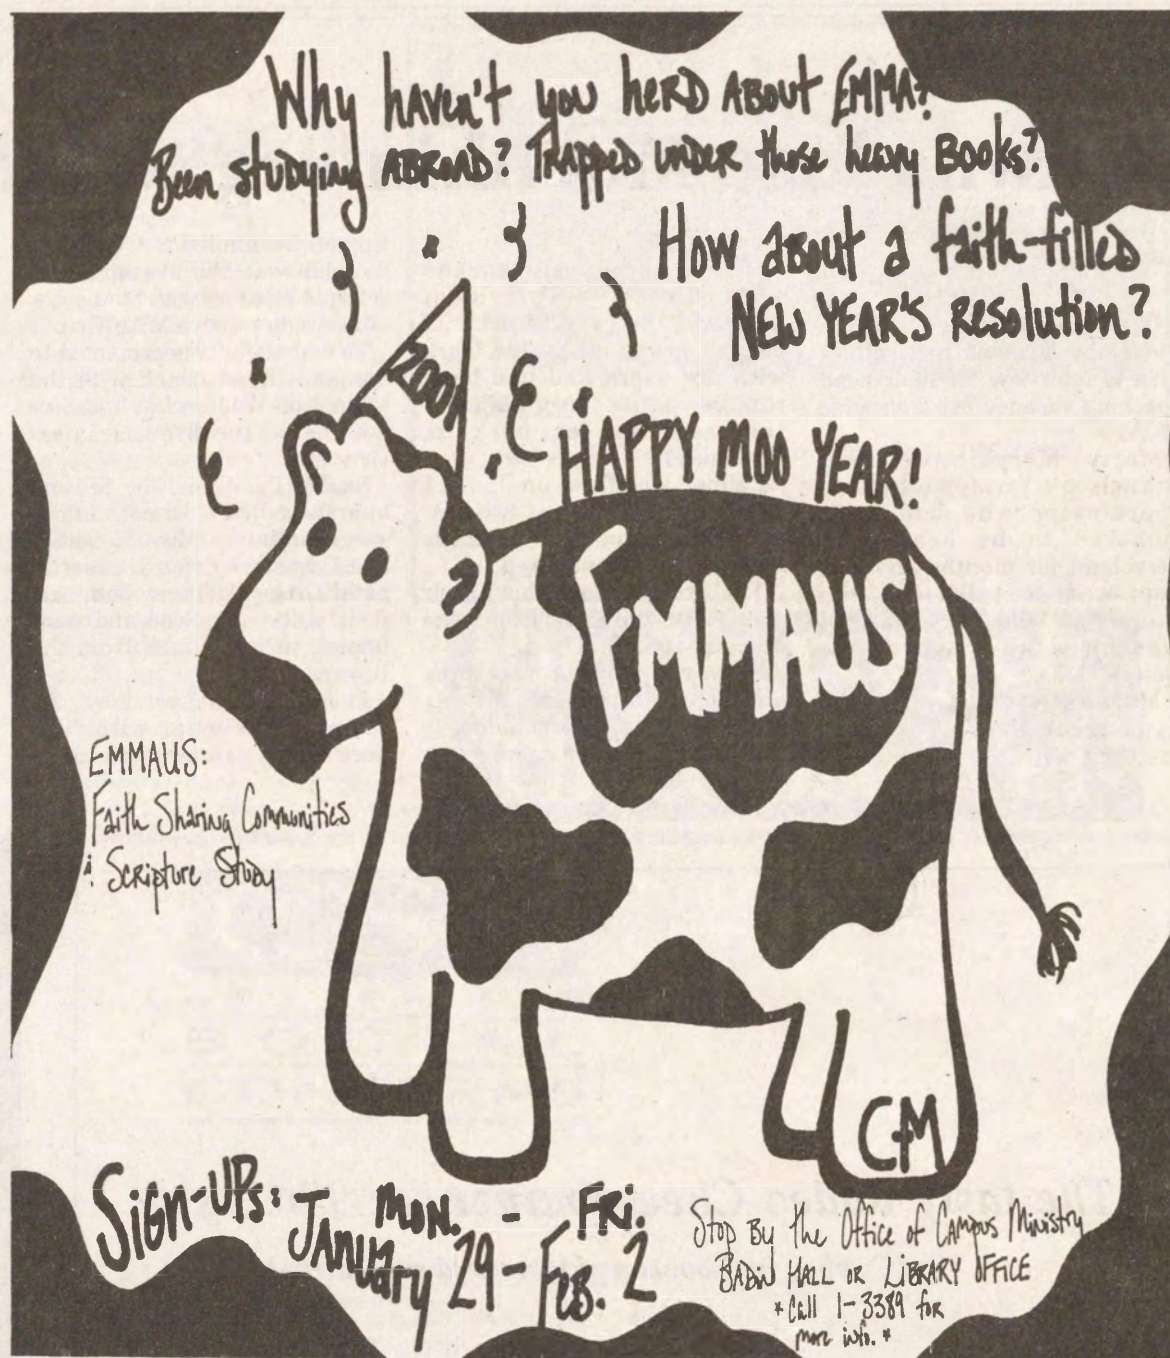 Why haven't you herd about EMMA?
Been studying ABROAD? Trapped under those heavy BOOKS?
How about a faith-filled
NEW YEAR'S Resolution?
2001
HAPPY MOO YEAR!
EMMAUS
EMMAUS:
Faith Sharing Communities
& Scripture Study
CM
Sign-UPs: MON. - FRI.
JANUARY 29 - FEB. 2
Stop By the Office of Campus Ministry
BADIN HALL OR LIBRARY OFFICE
*Call 1-3389 for
more info.*